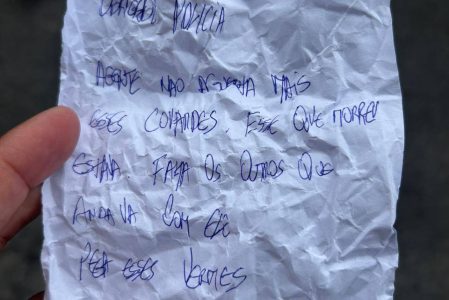 POLICIA
AGENTE NÃO AGUENTA MAIS
ESSES COVARDES. ESSE QUE MORREU
FALTA OS OUTROS QUE
ANDAVA COM ELE
PEGA ESSES VERMES